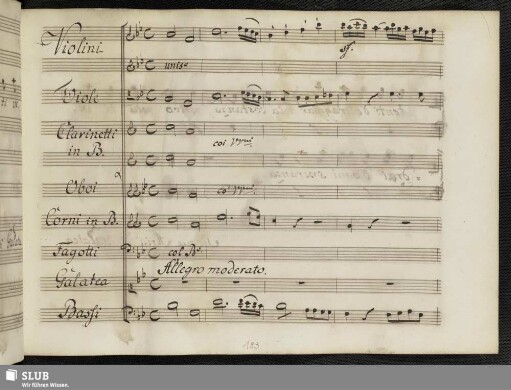 Violini
unis.
ff.
Viole
Clarinetti
in B.
coi VVni
Oboi
coi VVni
Corni in B.
Fagotti
col B.
Allegro moderato.
Galatea
Bassi
183
SLUB
Wir führen Wissen.